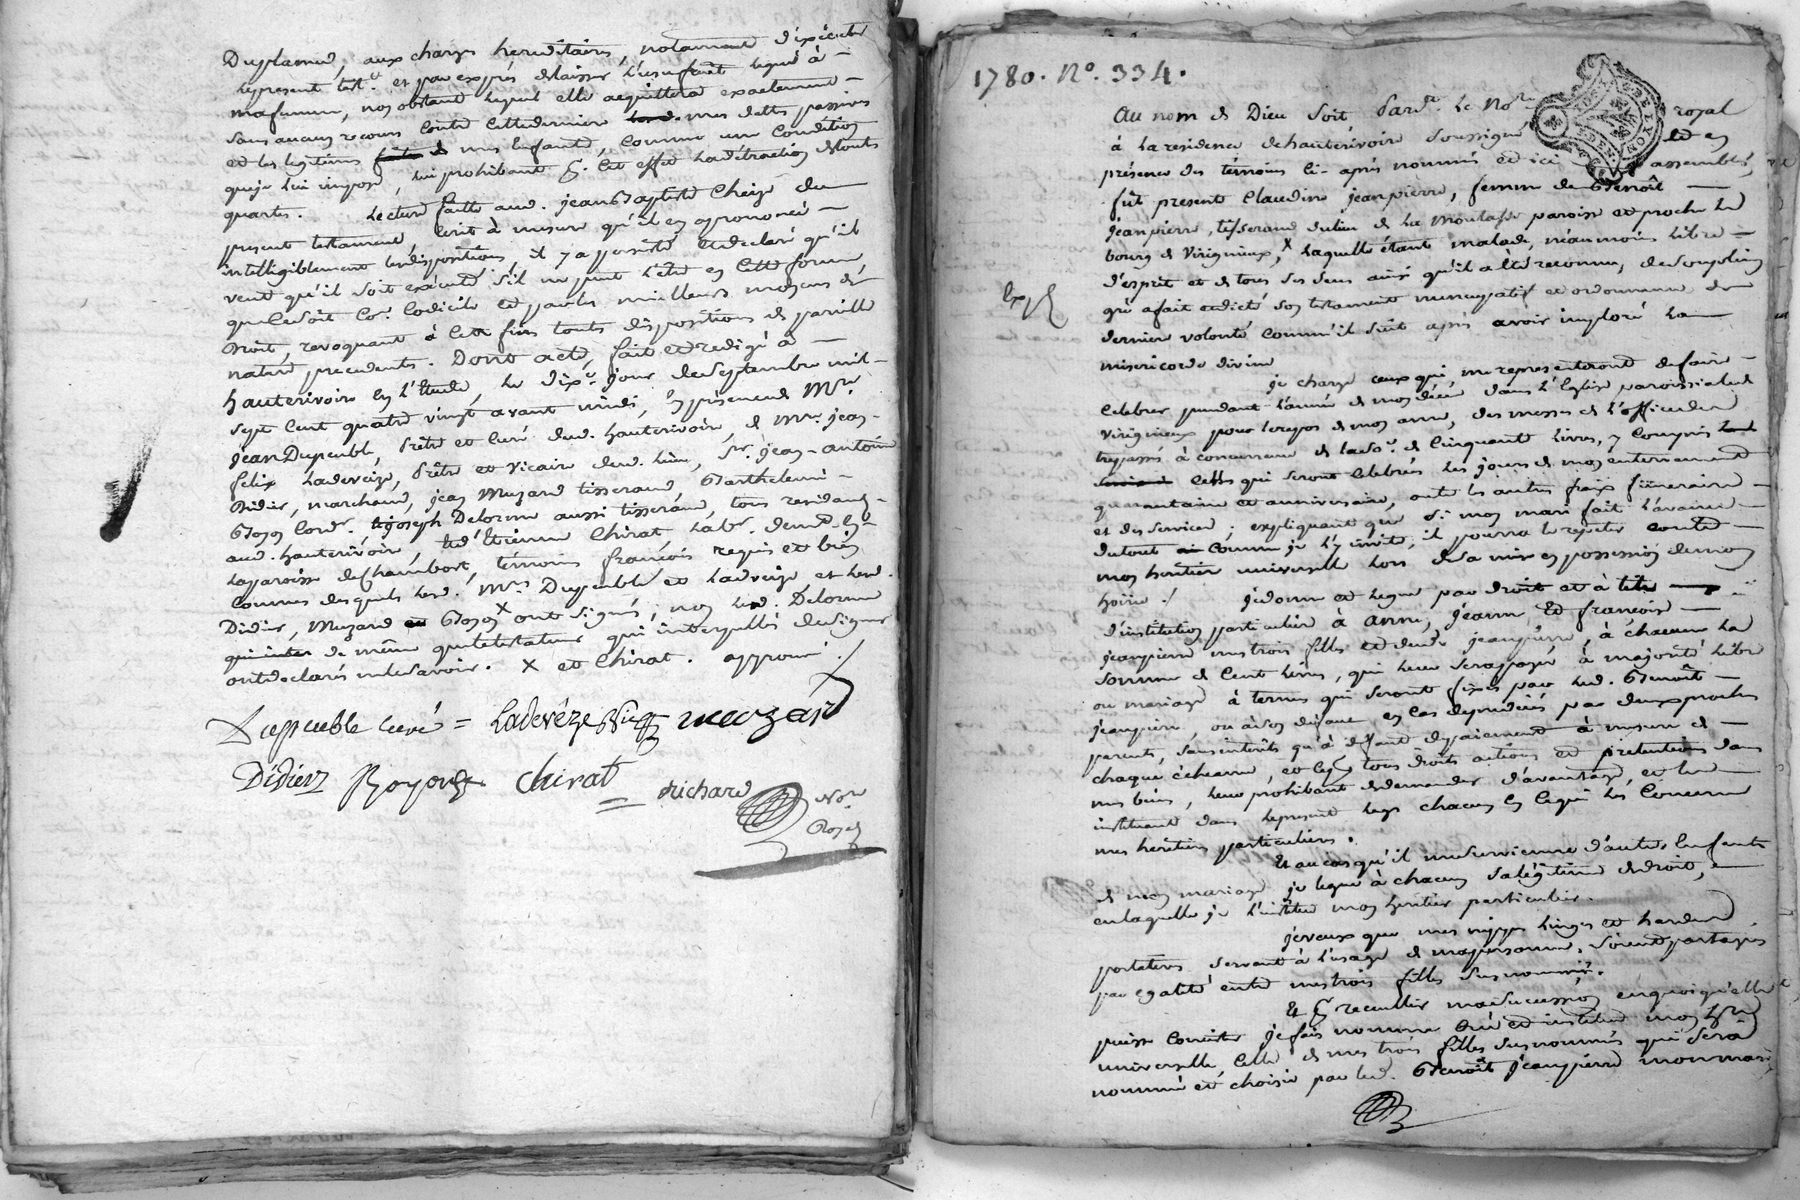 Duplanié, aux charges hereditaires, notament d'exécuter
le present test.t et par exprés delaisser l'usufruit legué à
ma femme, nonobstant lequel elle acquittera exactement
sans aucun recours contre cette derniere mes dettes passives
et les legitimes de mes enfants, comme une condition
que je lui impose, lui prohibant p.r cet effet la detraction de toute
quarte. Lecture faitte aud. jean Baptiste Cheize du
present testament, écrit à mesure qu'il en a prononcé
intelligiblement les dispositions, il y a persisté et declaré qu'il
veut qu'il soit exécuté s'il ne peut l'etre en cette forme
que ce soit co.e codicile et par les meilleurs moyens de
droit, revoquant à cette fin toute dispositions de pareille
nature precedente. Dont acte, fait et redigé à
hauterivoire en l'Etude, le dix.e jour de septembre mil
sept cent quatre vingt avant midi, en présence de M.re
jean Dupeuble, Prêtre et curé dud. hauterivoire, de M.re jean
felix Ladevéze, Prêtre et vicaire dud. lieu, S.r jean-antoine
Didier, marchand, jean Muzard tisserand, Barthelemi
Boyon cord.r joseph Delorme aussi tisserand, tous residants
aud. hauterivoire, et d'Etienne Chirat, lab.r demeur.t en
la paroisse de Chambost, témoins françois requis et bien
connus desquels lesd. M.rs Dupeuble et Ladeveze, et lesd.
Didier, Muzard Boyon X ont signé, non led. Delorme
de même que le testateur qui interpellés de signer
ont declarés ne le savoir. X et Chirat. approuvé.
Dupeuble curé = Ladevéze Vic. muzard
Didier Boyon Chirat richard
No.re
Royal
1780. N.o 334.
Au nom de Dieu soit. Pard.t le No.re royal
à la residence de hauterivoire soussigné et en
présence des témoins ci-après nommés et ici assemblés,
fut presente Claudine jeanpierre, femme de Benoît
jeanpierre, tisserand du lieu de la paroisse et proche le
bourg de Virigneux, X laquelle étant malade, néanmoins libre
d'esprit et de tous ses sens ainsi qu'il a été reconnu, de son plein
gré a fait et dicté son testament nuncupatif et ordonnance de
derniere volonté comme il suit après avoir imploré la
misericorde divine
Exp.é
je charge ceux qui me representeront de faire
celebrer pendant l'année de mon décès dans l'Eglise paroissiale de
Virigneux pour le repos de mon ame, des messes de l'office des
trepassés à concurrence de la so.e de cinquante livres, y compris
celles qui seront celebrées les jours de mon enterrement
quarantaine et anniversaire, outre les autres fraix funéraires
et des services; expliquant que si mon mari fait l'avance
du tout comme je l'y invite, il pourra le repeter contre
mon heritier universelle lors de sa mise en possession de mon
hoirie. / je donne et legue par droit et à titre
d'institution particuliere à anne, jeanne et françoise
jeanpierre mes trois filles et dud. jeanpierre, à chacune la
somme de cent livres, qui leur sera payée à majorité libre
ou mariage à termes qui seront fixés par led. Benoît
jeanpierre, ou à son defaut en cas de predécès par deux proches
parents, sans interêts qu'à defaut de paiement à mesure de
chaque écheance, et ce p.r tous droits actions et pretentions dans
mes biens, leur prohibant de demander d'avantage, et les
instituant dans le present legs chacun en ce qui les concerne
mes heritiers particuliers.
Et au cas qu'il me survienne d'autres Enfants
de mon mariage je legue à chacun sa légitime de droit, en
laquelle je l'institue mon heritier particulier.
je veux que mes nippes linges et hardes
portatives servant à l'usage de ma personne, soient partagés
par egalité entre mes trois filles susnommées.
Et p.r recueillir ma succession en quoi qu'elle
puisse consister je fais nomme crée et institue mon h.re
universelle celle de mes trois filles susnommés qui sera
nommée et choisie par led. Benoît jeanpierre mon mari,